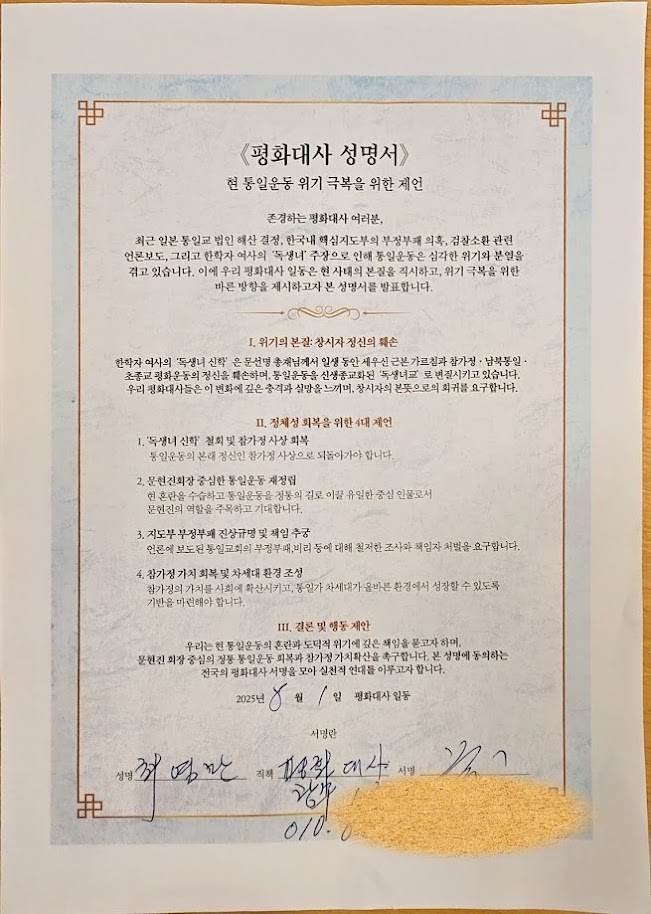 《평화대사 성명서》
현 통일운동 위기 극복을 위한 제언
존경하는 평화대사 여러분,
최근 일본 통일교 법인 해산 결정, 한국내 핵심지도부의 부정부패 의혹, 검찰소환 관련
언론보도, 그리고 한학자 여사의 '독생녀' 주장으로 인해 통일운동은 심각한 위기와 분열을
겪고 있습니다. 이에 우리 평화대사 일동은 현 사태의 본질을 직시하고, 위기 극복을 위한
바른 방향을 제시하고자 본 성명서를 발표합니다.
I. 위기의 본질: 창시자 정신의 훼손
한학자 여사의 '독생녀 신학' 은 문선명 총재님께서 일생 동안 세우신 근본 가르침과 참가정·남북통일·
초종교 평화운동의 정신을 훼손하며, 통일운동을 신생종교화된 '독생녀교' 로 변질시키고 있습니다.
우리 평화대사들은 이 변화에 깊은 충격과 실망을 느끼며, 창시자의 본뜻으로의 회귀를 요구합니다.
II. 정체성 회복을 위한 4대 제언
1. '독생녀 신학' 철회 및 참가정 사상 회복
통일운동의 본래 정신인 참가정 사상으로 되돌아가야 합니다.
2. 문현진회장 중심한 통일운동 재정립
현 혼란을 수습하고 통일운동을 정통의 길로 이끌 유일한 중심 인물로서
문현진의 역할을 주목하고 기대합니다.
3. 지도부 부정부패 진상규명 및 책임 추궁
언론에 보도된 통일교회의 부정부패,비리 등에 대해 철저한 조사와 책임자 처벌을 요구합니다.
4. 참가정 가치 회복 및 차세대 환경 조성
참가정의 가치를 사회에 확산시키고, 통일가 차세대가 올바른 환경에서 성장할 수 있도록
기반을 마련해야 합니다.
III. 결론 및 행동 제안
우리는 현 통일운동의 혼란과 도덕적 위기에 깊은 책임을 묻고자 하며,
문현진 회장 중심의 정통 통일운동 회복과 참가정 가치확산을 촉구합니다. 본 성명에 동의하는
전국의 평화대사 서명을 모아 실천적 연대를 이루고자 합니다.
2025년 8 월 1 일 평화대사 일동
서명란
성명 최영만 직책 평화대사 서명
010.